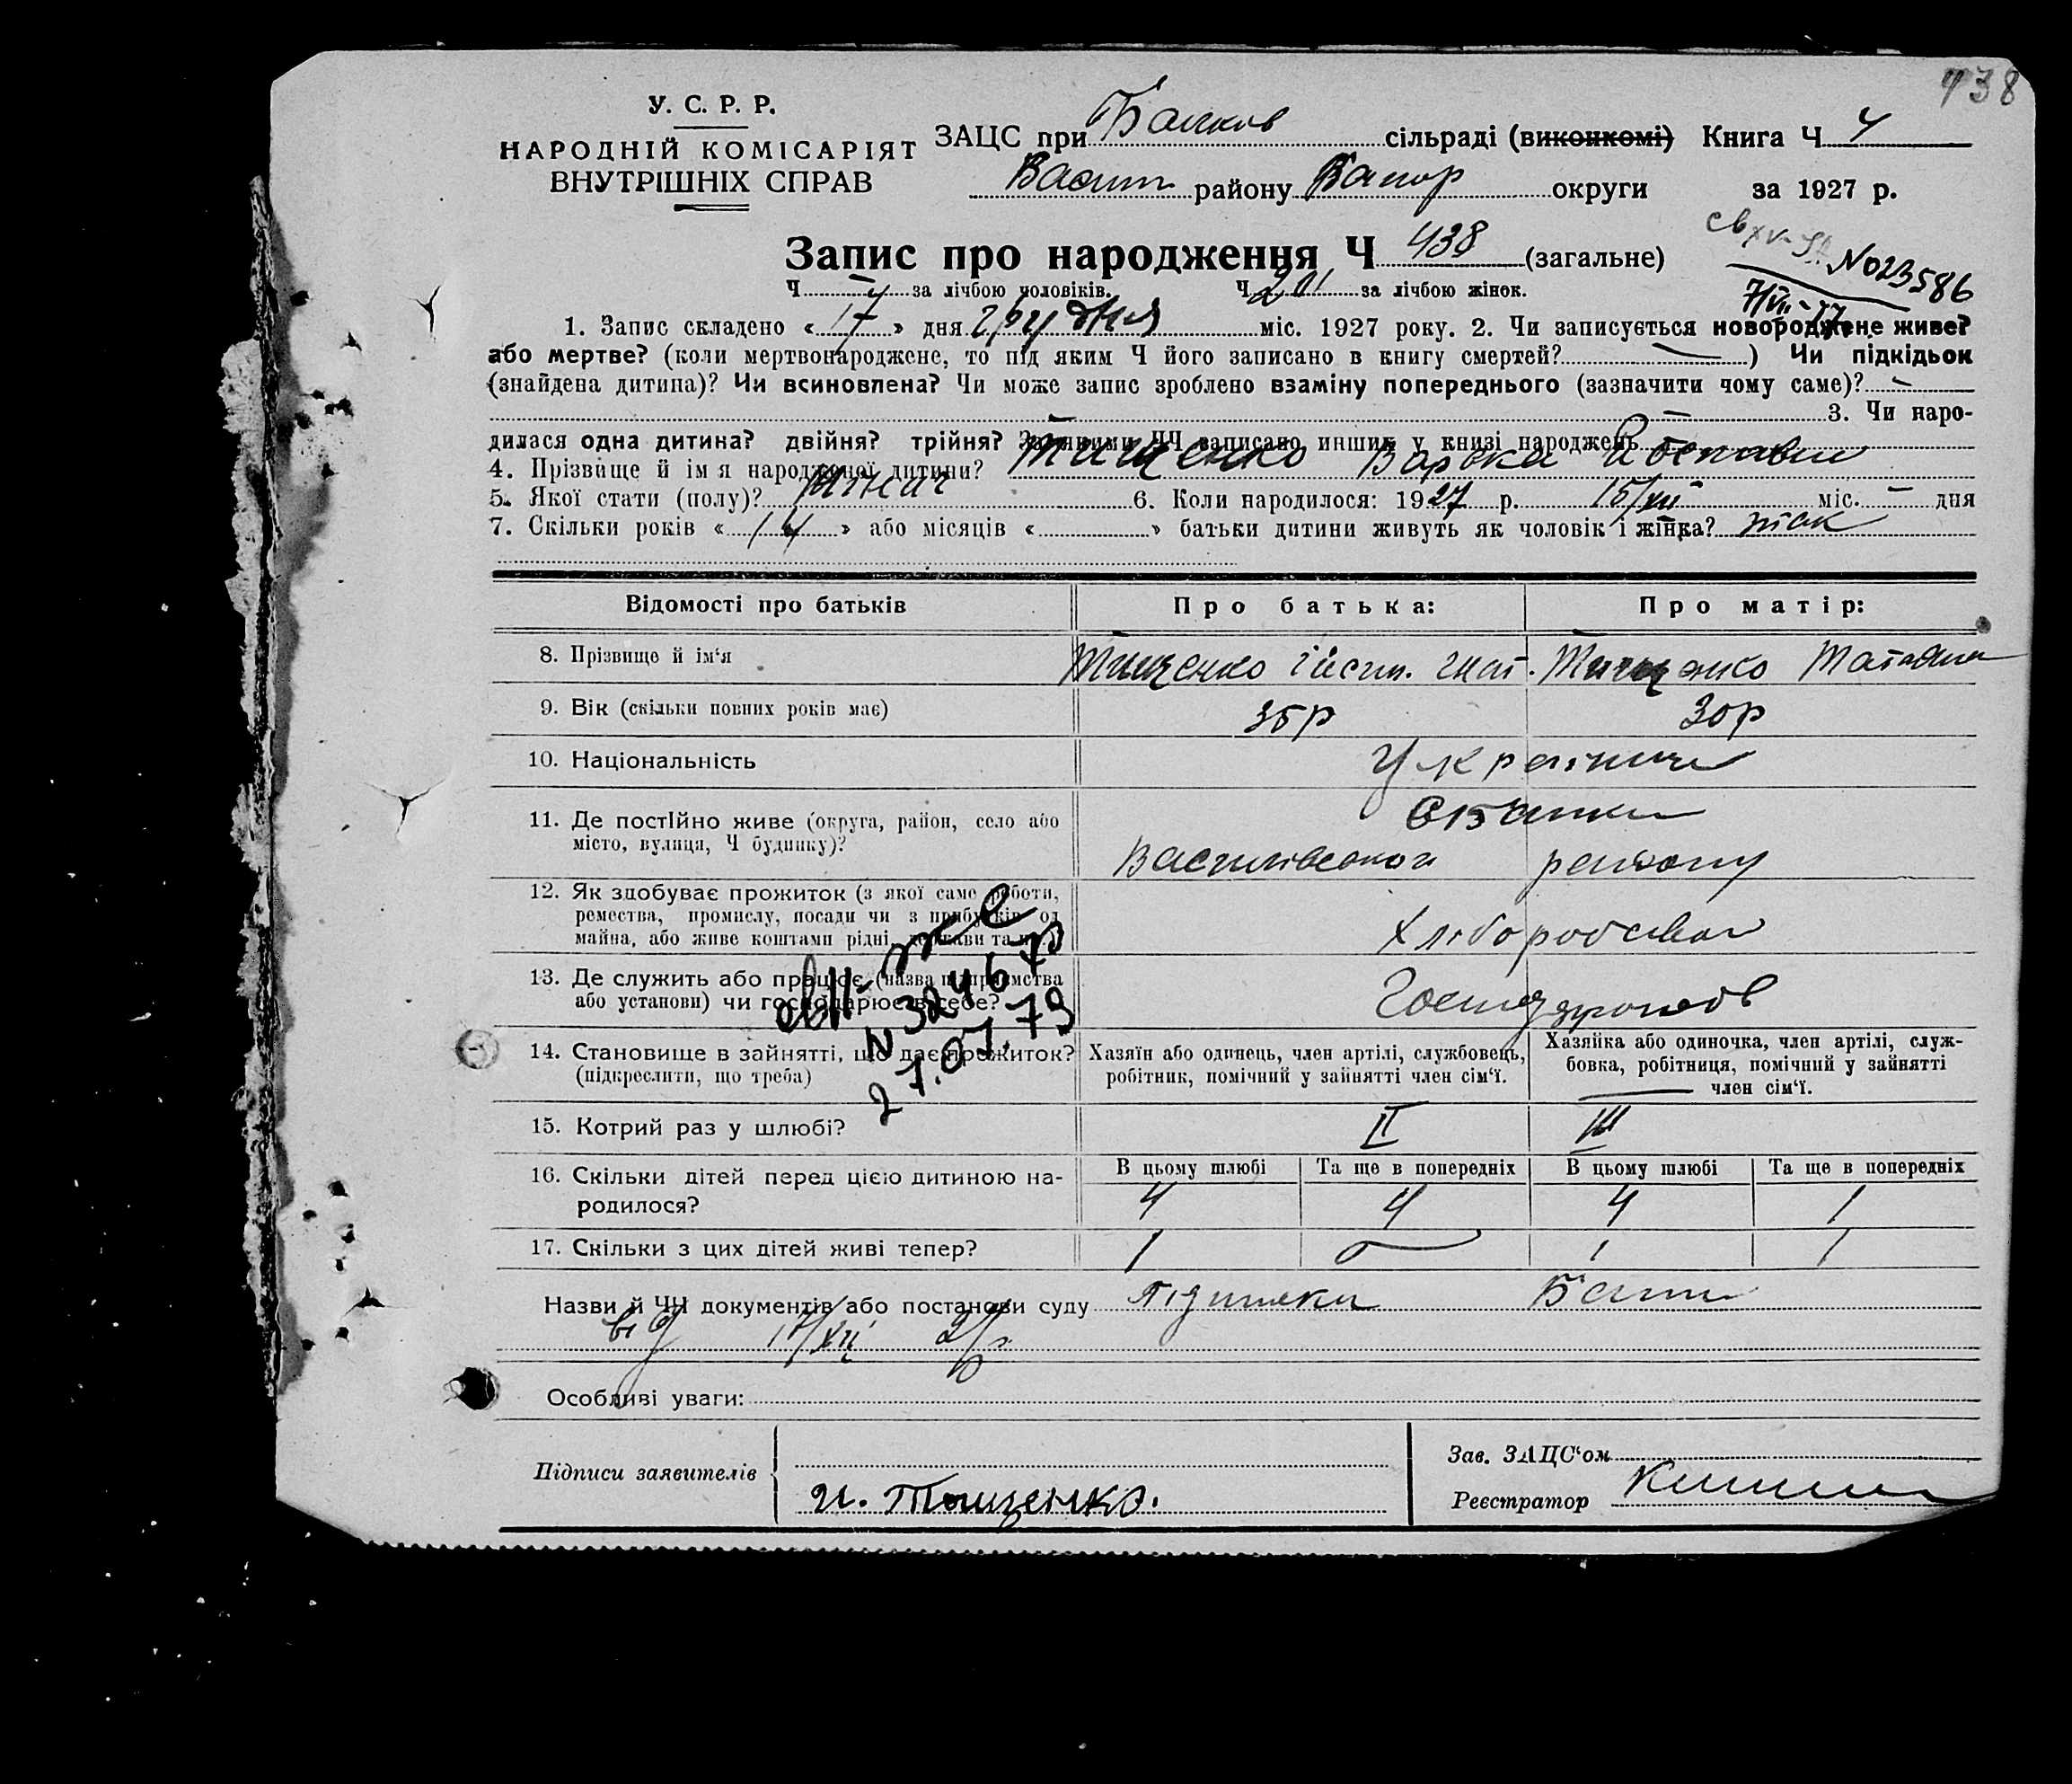 438
У. С. Р. Р.
НАРОДНІЙ КОМІСАРІЯТ
ВНУТРІШНІХ СПРАВ
ЗАЦС при Балков сільраді (виконкомі) Книга Ч 4
Васил району Запор округи за 1927 р.
Запис про народження Ч 438 (загальне)
№023586
Ч. — за лічбою чоловіків. Ч 201 за лічбою жінок.
1. Запис складено « 17 » дня грудня міс. 1927 року. 2. Чи записується новороджене живе?
або мертве? (коли мертвонароджене, то під яким Ч його записано в книгу смертей? — ) Чи підкідьок
(знайдена дитина)? Чи всиновлена? Чи може запис зроблено взаміну попереднього (зазначити чому саме)? —
3. Чи наро-
дилася одна дитина? двійня? трійня? За якими ЧЧ записано инших у книзі народжень
4. Прізвище й імя народженої дитини? Тищенко Варвка
5. Якої стати (полу)? жіноч 6. Коли народилося: 1927 р. 15/XII міс. — дня
7. Скільки років « 14 » або місяців « » батьки дитини живуть як чоловік і жінка? так
Відомості про батьків Про батька: Про матір:
8. Прізвище й ім'я Тищенко Гнат. Тищенко Татьяна
9. Вік (скільки повних років має) 35р 30р
10. Національність Українці
11. Де постійно живе (округа, район, село або
місто, вулиця, Ч будинку)?
Василівського району
12. Як здобуває прожиток (з якої саме роботи,
ремества, промислу, посади чи з прибутків од
майна, або живе коштами рідні, держави та ин.)
13. Де служить або працює (назва підприємства
або установи) чи господарює в себе?
N 32467
27.07.79
14. Становище в зайнятті, що дає прожиток? Хазяїн або одинець, член артілі, службовець, Хазяйка або одиночка, член артілі, служ-
(підкреслити, що треба) робітник, помічний у зайнятті член сім'ї. бовка, робітниця, помічний у зайнятті
член сім'ї.
15. Котрий раз у шлюбі? II III
16. Скільки дітей перед цією дитиною на- В цьому шлюбі Та ще в попередніх В цьому шлюбі Та ще в попередніх
родилося? 4 4 4 1
17. Скільки з цих дітей живі тепер? 1 — 1 1
Назви й ЧЧ документів або постанови суду
від 17/XII 27р
Особливі уваги:
Підписи заявителів
И. Тищенко.
Зав. ЗАЦС'ом
Реєстратор